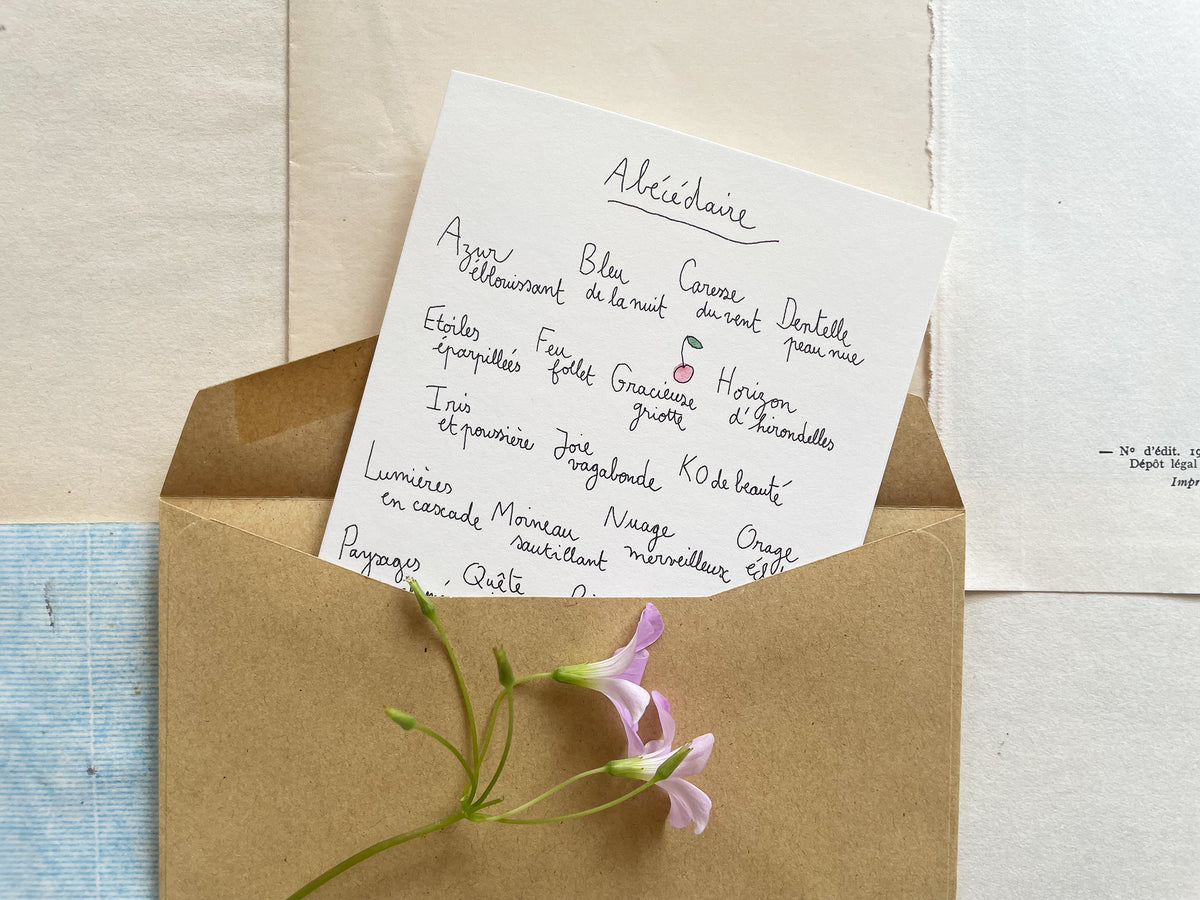 Abécédaire
Azur Bleu Caresse Dentelle
éblouissant de la nuit du vent peau nue
Etoiles Feu Gracieuse Horizon
éparpillées follet griotte d'hirondelles
Iris Joie KO de beauté
et poussière vagabonde
Lumières Moineau Nuage Orage
en cascade sautillant merveilleux
Paysages Quête
— Nº d'édit. 19
Dépôt légal
Impr